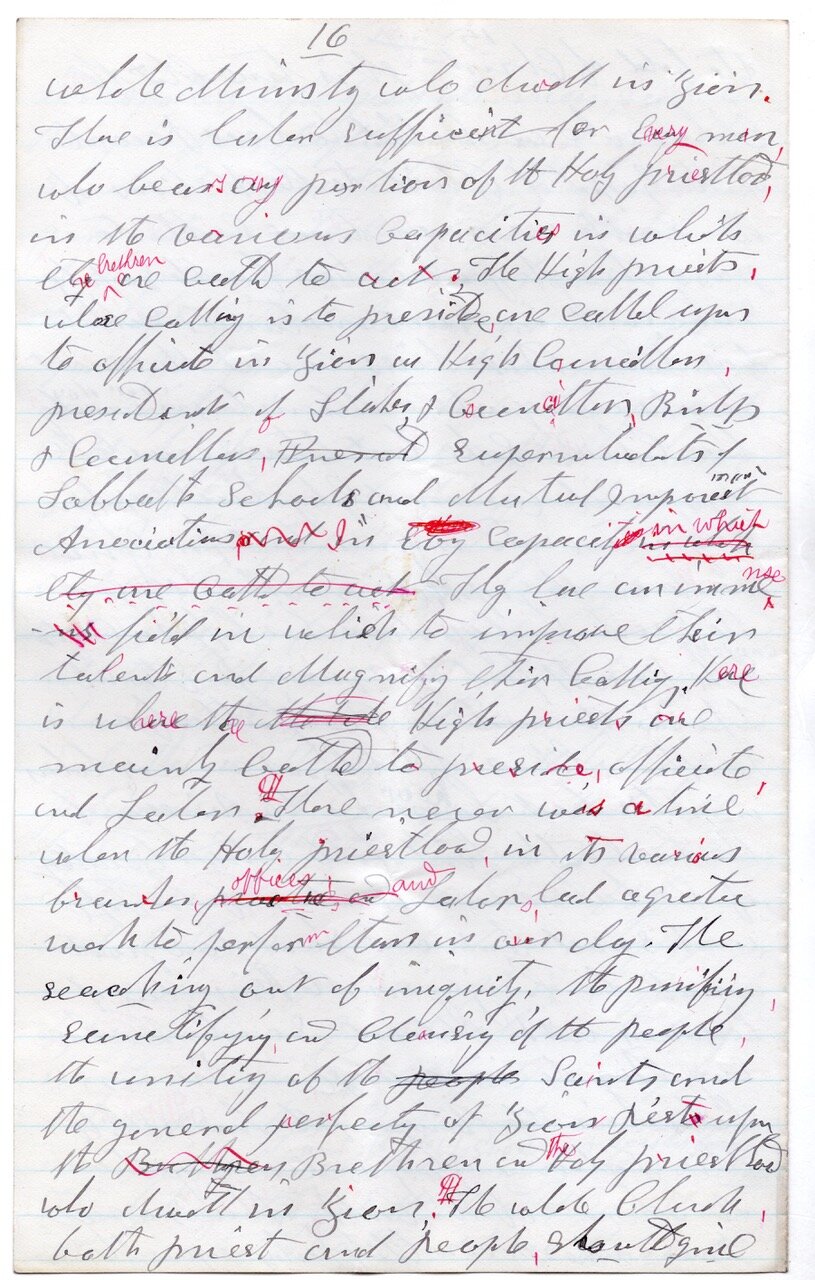 16
whole Ministry who dwell in Zion.
There is labor sufficient for every man,
who bears any portion of the Holy priesthood,
in the various Capacities in which
the brethren are called to act. The High priests,
whose Calling is to preside, are called upon
to officiate in Zion as High Councillors,
presidents of Stakes, & Councillors, Bishops
& Councillors, Superintendents of
Sabbath Schools and Mutual Improvement
Associations In Evry Capacity in which
they are called to act They have an immense
field in which to improve their
talents and Magnify their Calling. Here
is where the High priests are
mainly called to preside, officiate,
and Labor. ¶ There never was a time
when the Holy priesthood, in its various
branches, offices, and Labors, had a greater
work to perform than in our day. The
searching out of iniquity, the purifying,
sanctifying and Cleansing of the people,
the unity of the people Saints and
the general perfecty of Zion rests upon
the Brethren Brethren and the Holy priesthood
who dwell in Zion. ¶ The whole Church,
both priest and people, should give